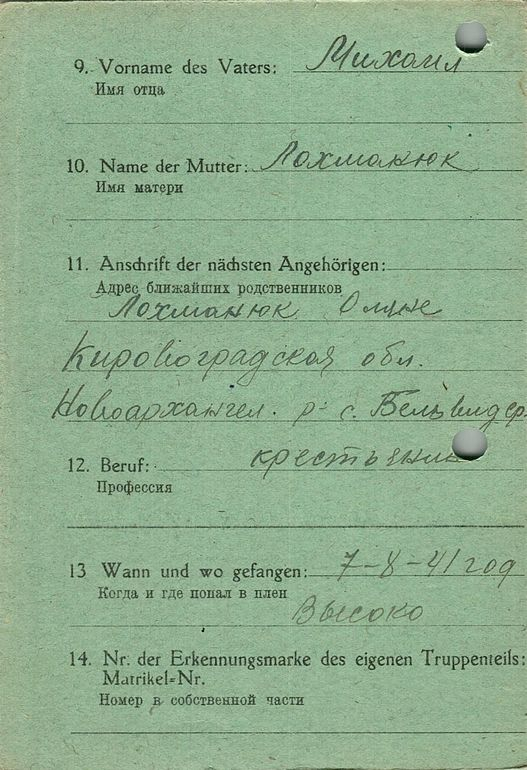 9. Vorname des Vaters: Михаил
Имя отца
10. Name der Mutter: Лохманюк
Имя матери
11. Anschrift der nächsten Angehörigen:
Адрес ближайших родственников
Лохманюк Оляне
Кировоградская обл.
Новоархангел. р- с. Бельвидер
12. Beruf: крестьянин
Профессия
13 Wann und wo gefangen: 7-8-41 год
Когда и где попал в плен
Высоко
14. Nr. der Erkennungsmarke des eigenen Truppenteils:
Matrikel=Nr.
Номер в собственной части